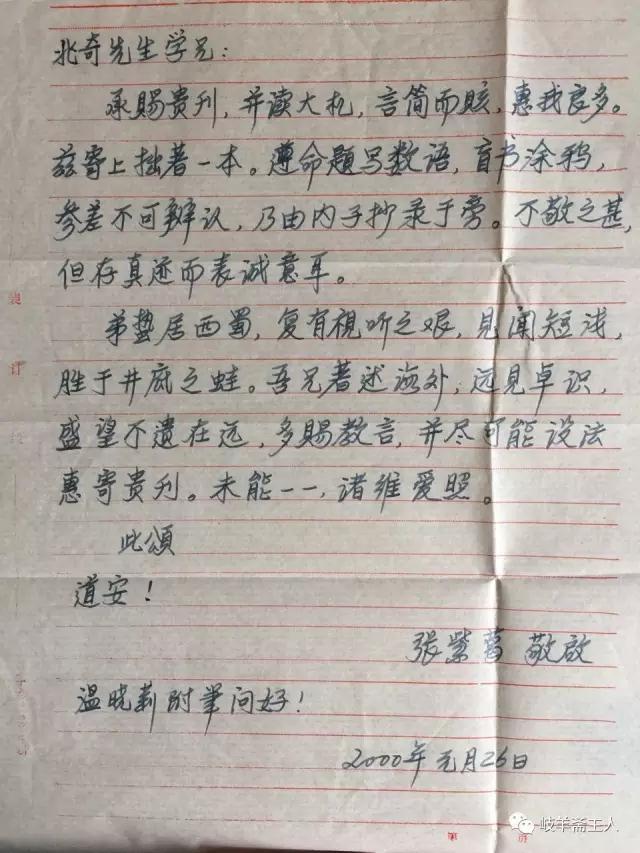 北奇先生学兄：
承赐贵刊，并读大札，言简而赅，惠我良多。
兹寄上拙著一本。遵命题写数语，盲书涂鸦，
参差不可辩认，乃由内子抄录于旁。不敬之甚，
但存真迹而表诚意耳。
弟蛰居西蜀，复有視听之艰，見闻短浅，
胜于井底之蛙。吾兄著述海外，远見卓识，
盛望不遗在远，多賜教言，并尽可能设法
惠寄贵刊。未能一一，诸维爱照。
此頌
道安！
張紫葛 敬啟
温晓莉附筆问好！
2000年元月26日
装
订
线
第 页
岐羊斋主人